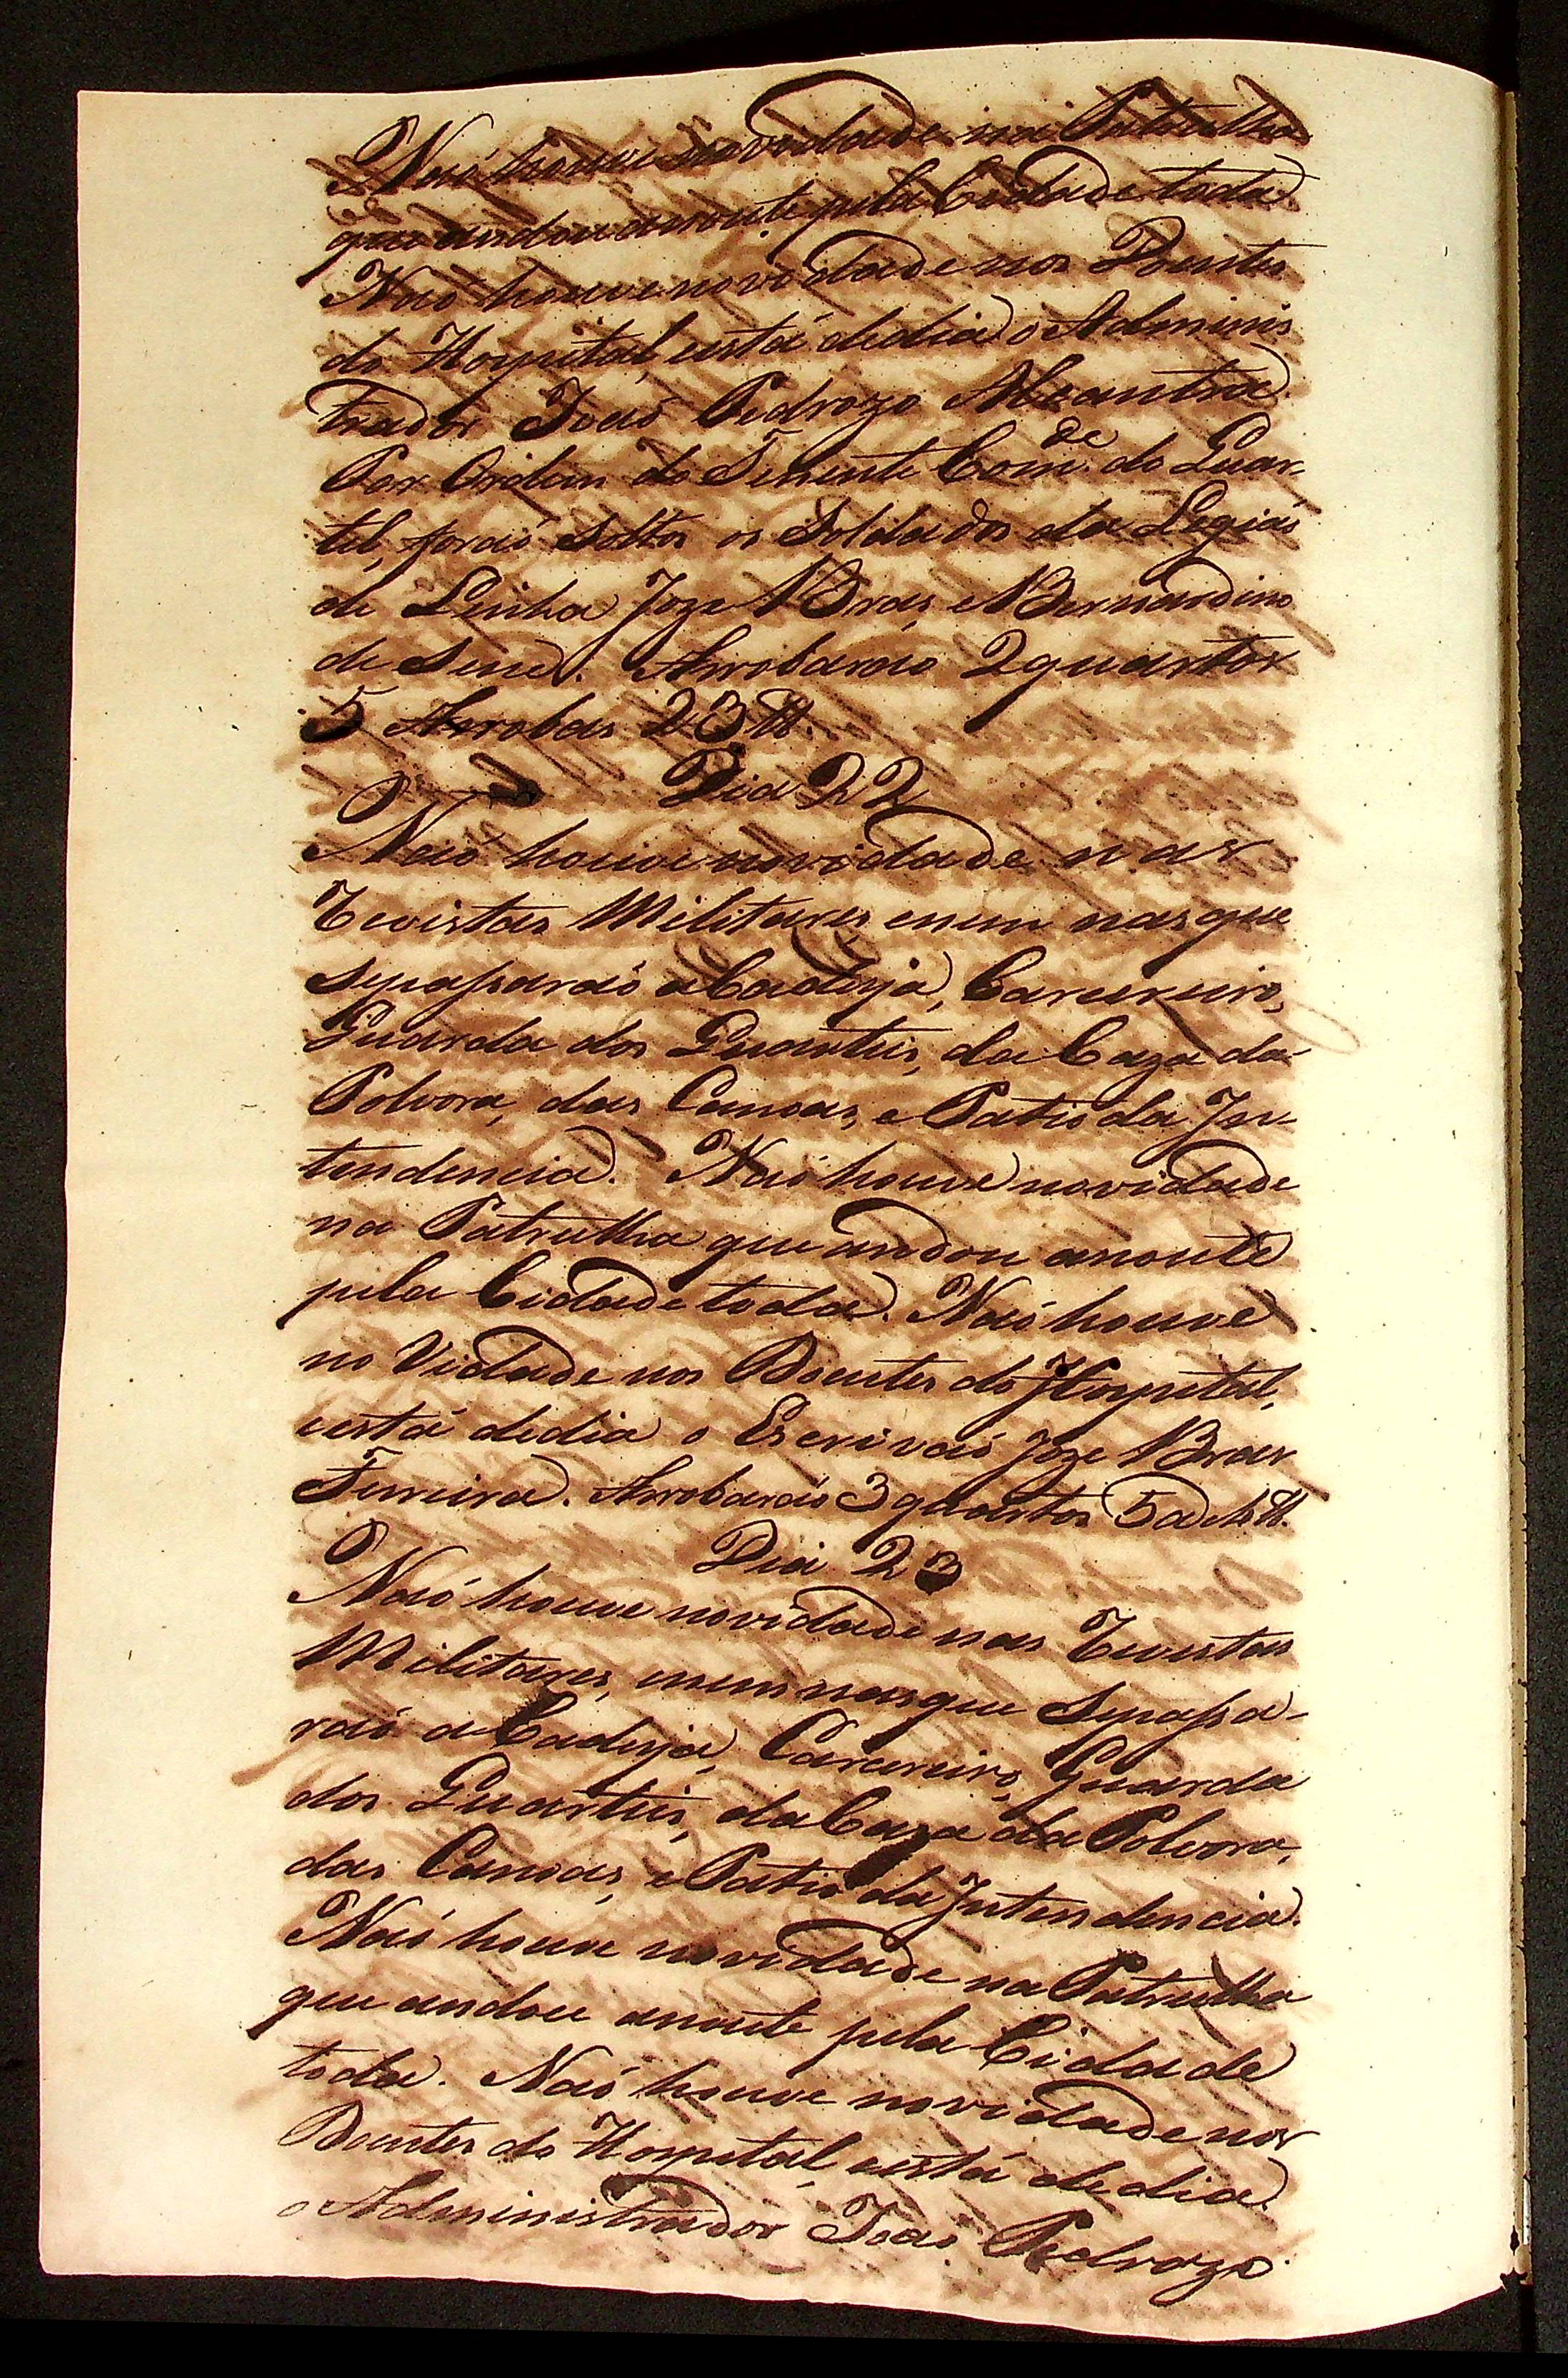 Naó houve novidade na Patrulha
que andou anoute pela Cidade toda.
Naó houve novidade nos Doentes
do Hospital, está dedia o Adminis
trador Joaó Pedrozo Alcantra.
Por Ordem do Tenente Com.de do Quar
tel, foraó Soltos os Soldados da Legiaó
de Linha Joze Bras, e Bernardino
de Sene. Arrobaraó 2 quartos
5 Arrobas 23 ℔.
Dia 22
Naó houve novidade nas
Revistas Militares, enem nas que
sepassaraó a Cadeya, Carcereiro,
Guarda dos Quarteis, da Caza da
Polvora, das Canoas, e Patio da In-
tendencia. Naó houve novidade
na Patrulha que andou anoute
pela Cidade toda. Naó houve
no Vidade nos Doentes do Hospital,
está dedia o Escrivaó Joze Bras
Ferreira. Arrobaraó 3 quartos 5 a ℔.
Dia 23
Naó houve novidade nas Revistas
Militares, enem nas que Sepassa-
raó a Cadeya, Carcereiro, Guarda
dos Quarteis, da Caza da Polvora,
das Canoas, e Patio da Intendencia.
Naó houve novidade na Patrulha
que andou anoute pela Cidade
toda. Naó houve novidade nos
Doentes do Hospital, está dedia
o Administrador Joaó Pedrozo